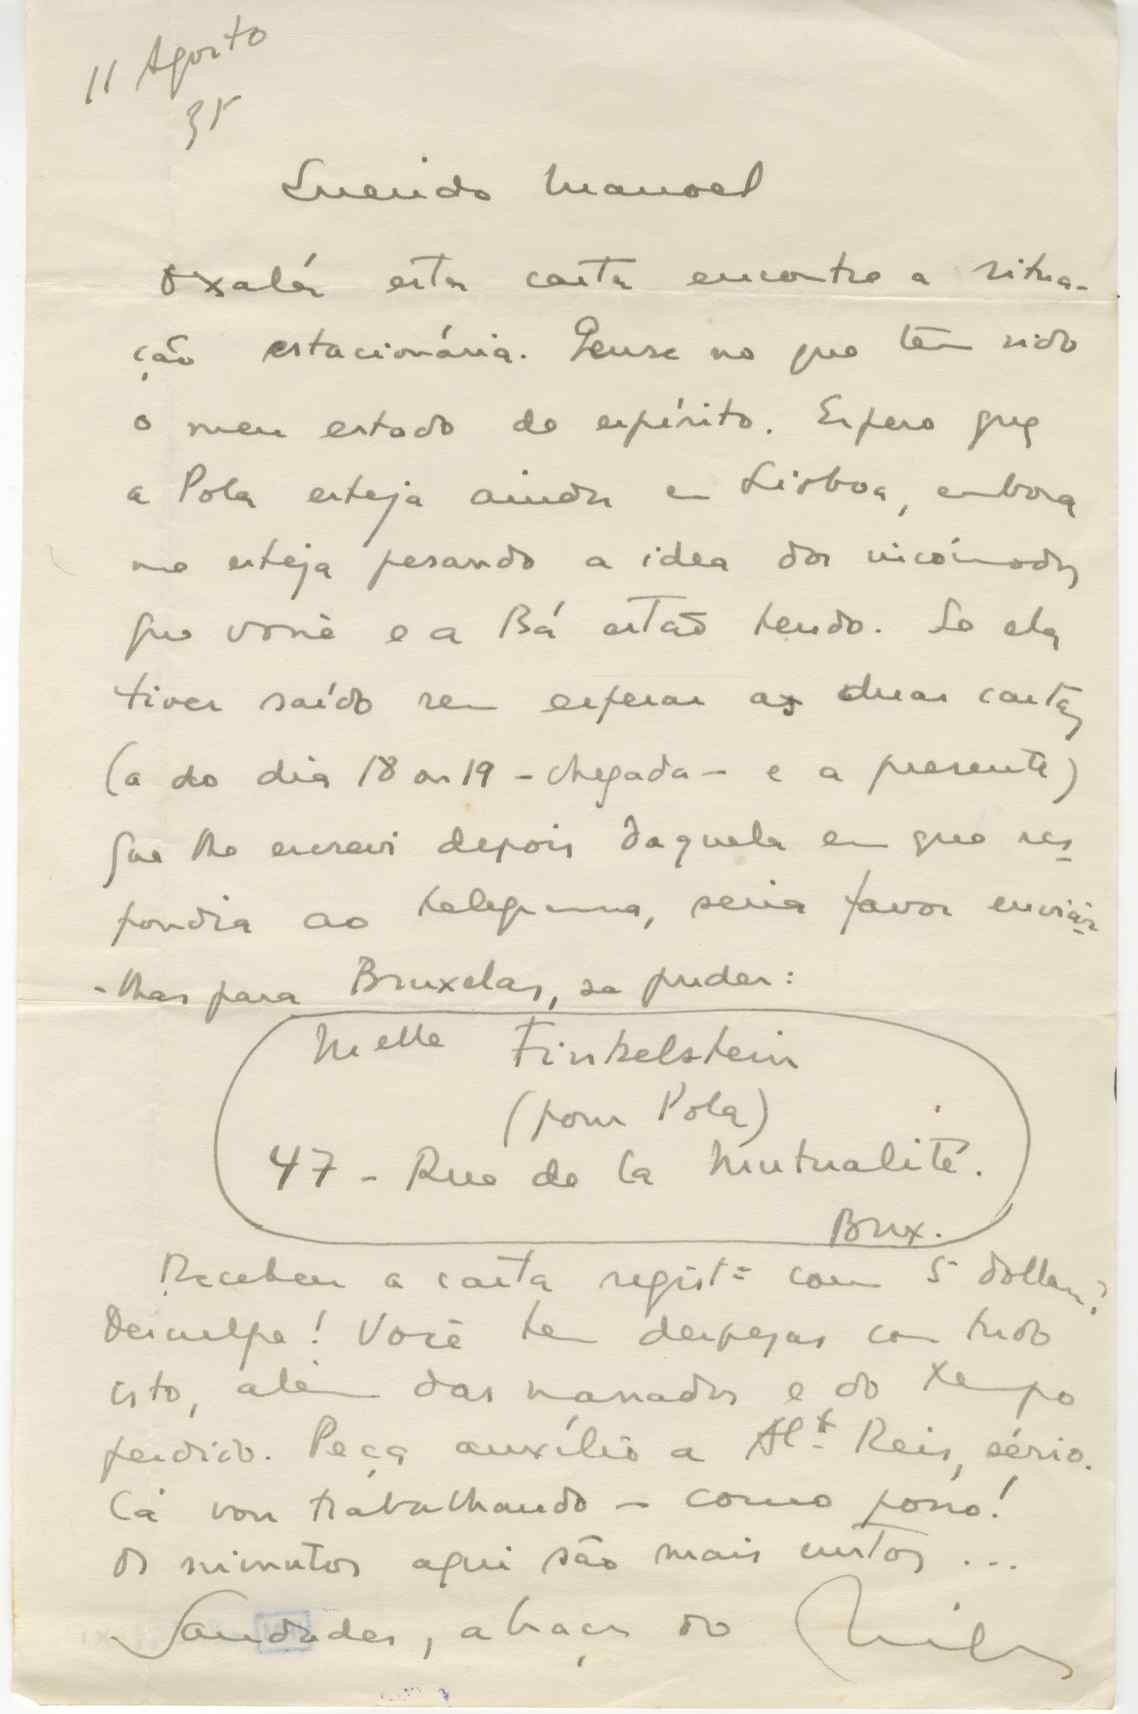 11 Agosto
35
Querido Manoel
Oxalá esta carta encontre a situa-
ção estacionária. Pense no que têm sido
o meu estado de espírito. Espero que
a Pola esteja ainda em Lisboa, embora
me esteja pesando a idea dos incómodos
que você e a Bá estão tendo. Se ela
tiver saído sem esperar as duas cartas
(a do dia 18 ou 19 - chegada - e a presente)
que lhe escrevi depois daquela em que res-
pondia ao telegrama, seria favor enviár-
-lhas para Bruxelas, se puder:
Melle Finkelstein
(pour Pola)
47 - Rue de la Mutualité.
Brux.
Recebeu a carta regist= com 5 dollars?
Desculpe! Você tem despesas com tudo
isto, além das massadas e do tempo
perdido. Peça auxílio a Al.t Reis, sério.
Cá vou trabalhando - como posso!
Os minutos aqui são mais curtos ...
Saudades, abraços do